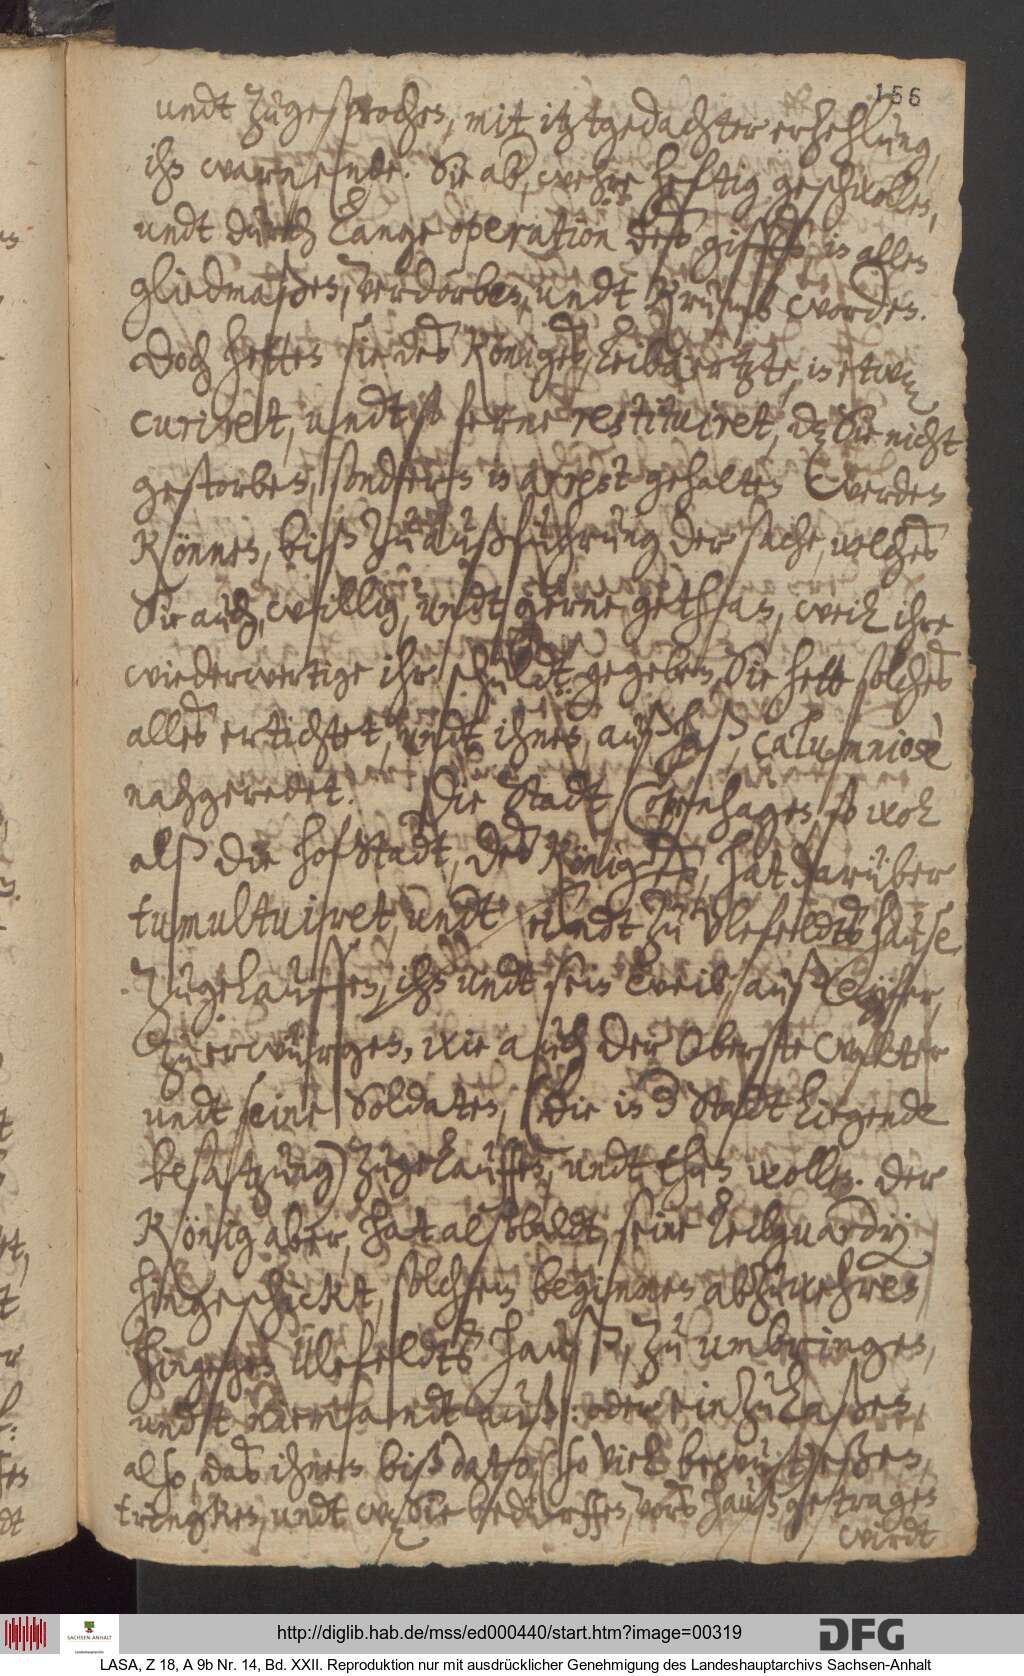 156
undt zugesprochen, mit itztgedachter erzehlung,
ihn warnende. Sie aber, wehre heftig geschwollen,
undt durch lange operation des giffts, in allen
gliedmaßen, verdorben, undt krumb worden.
Doch hetten sie des Königes Leibärtzte, in etwaß
curiret, undt so ferne restituiret, daß Sie nicht
gestorben, sondern in arrest gehalten werden
können, biß zu außführung der sache, welches
Sie auch, willig, undt gerne gethan, weil ihre
wiederwertige ihr schuldt gegeben, Sie hette solches
alles ertichtet, undt ihnen, auß haß, calumniose
nachgeredet. Die Stadt Copenhagen, so wol
alß die hofStadt, des Königes, hat darüber
tumultuiret, undt zu Ulefeldts hause
zugelauffen, ihn undt sein Weib, auß Eyfer,
zu erwürgen, wie auch der Oberste Wolter
undt seine Soldaten, (die in der Stadt liegende
besatzung) zugelauffen, undt thun wollen. Der
König aber, hat alsobaldt, seine Leibguardy
hingeschickt, solchem beginnen abzuwehren
hingegen Ulefeldts hauß, zu umbringen,
undt niemandt auß: oder ein zu laßen,
also, das ihnen biß dato, so viel bewust, eßen,
trincken, undt waß Sie bedürffen, vors hauß getragen
wirdt
http://diglib.hab.de/mss/ed000440/start.htm?image=00319
SACHSEN-ANHALT
Landeshauptarchiv
DFG
LASA, Z 18, A 9b Nr. 14, Bd. XXII. Reproduktion nur mit ausdrücklicher Genehmigung des Landeshauptarchivs Sachsen-Anhalt